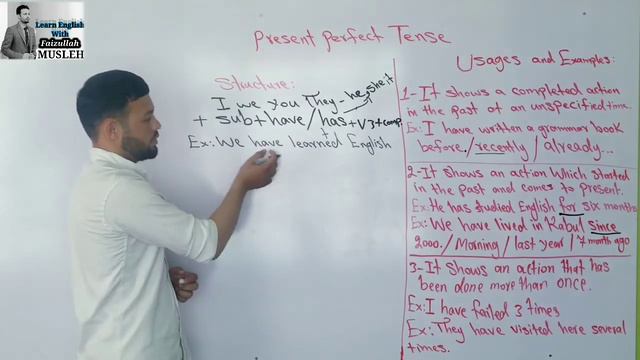 Learn English
With
Faizullah
MUSLEH
Present Perfect Tense
Structure:
I we you They - he, she, it
+ sub + have / has + V3 + comp.
Ex: We have learned English
Usages and Examples:
1- It shows a completed action
in the past at an unspecified time.
Ex: I have written a grammar book
before. / recently / already...
2- It shows an action which started
in the past and comes to present.
Ex: He has studied English for six months
Ex: We have lived in Kabul since
2000. / Morning / last year / 7 month ago
3- It shows an action that has
been done more than once.
Ex: I have failed 3 times
Ex: They have visited here several
times.